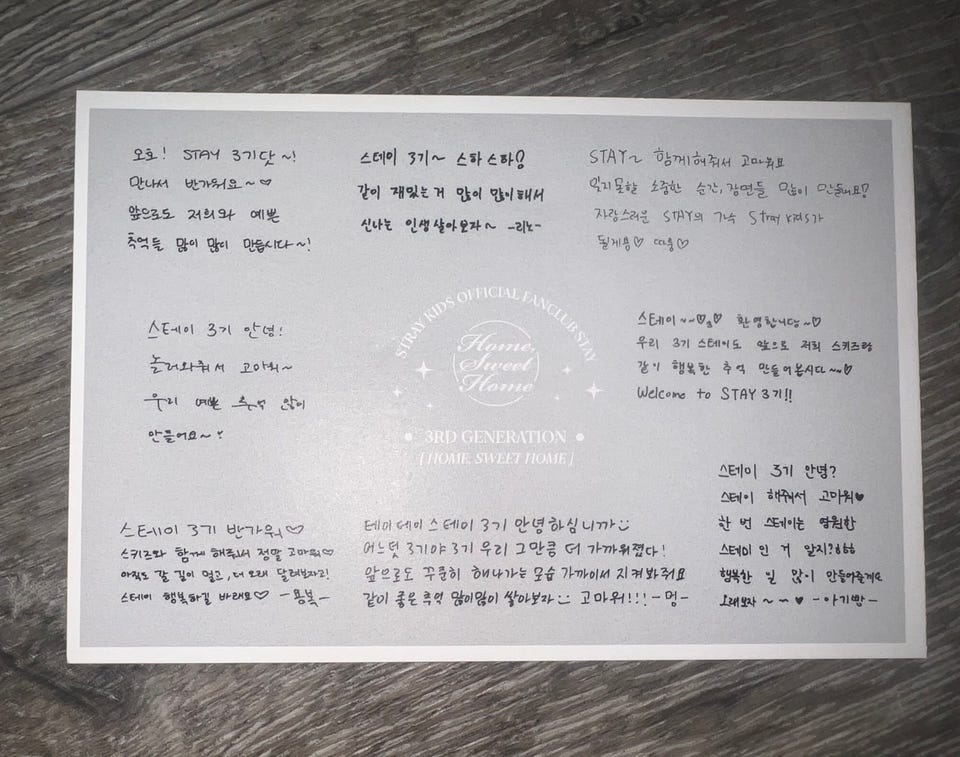 오호! STAY 3기닷~!
만나서 반가워요~♡
앞으로도 저희와 예쁜
추억들 많이 많이 만듭시다~!
스테이 3기~ 스하스하!
같이 재밌는거 많이 많이해서
신나는 인생살아보자~ -리노-
STAY~ 함께해줘서 고마워요
잊지못할 소중한 순간, 장면들 많이 만들어요!
자랑스러운 STAY의 가수 Stray Kids가
될게용♡ 따룽♡
스테이 3기 안녕!
놀러와줘서 고마워~
우리 예쁜 추억 많이
만들어요~
STRAY KIDS OFFICIAL FANCLUB STAY
Home,
Sweet
Home
3RD GENERATION
[HOME, SWEET HOME]
스테이~~♡3♡ 환영합니당~♡
우리 3기 스테이도 앞으로 저희 스키즈랑
같이 행복한 추억 만들어봅시다~~♡
Welcome to STAY 3기!!
스테이 3기 반가워♡
스키즈와 함께 해줘서 정말 고마워♡
아직도 갈 길이 멀고, 더 오래 달려보자고!
스테이 행복하길 바래요♡ -용복-
테이테이스테이 3기 안녕하십니까
어느덧 3기야 3기 우리 그만큼 더 가까워졌다!
앞으로도 꾸준히 해나가는 모습 가까이서 지켜봐줘요
같이 좋은 추억 많이많이 쌓아보자 고마워!!! -멍-
스테이 3기 안녕?
스테이 해줘서 고마워♥
한 번 스테이는 영원한
스테이인 거 알지?ㅎㅎㅎ
행복한 일 많이 만들어줄게요
오래보자~~♥ -아기빵-